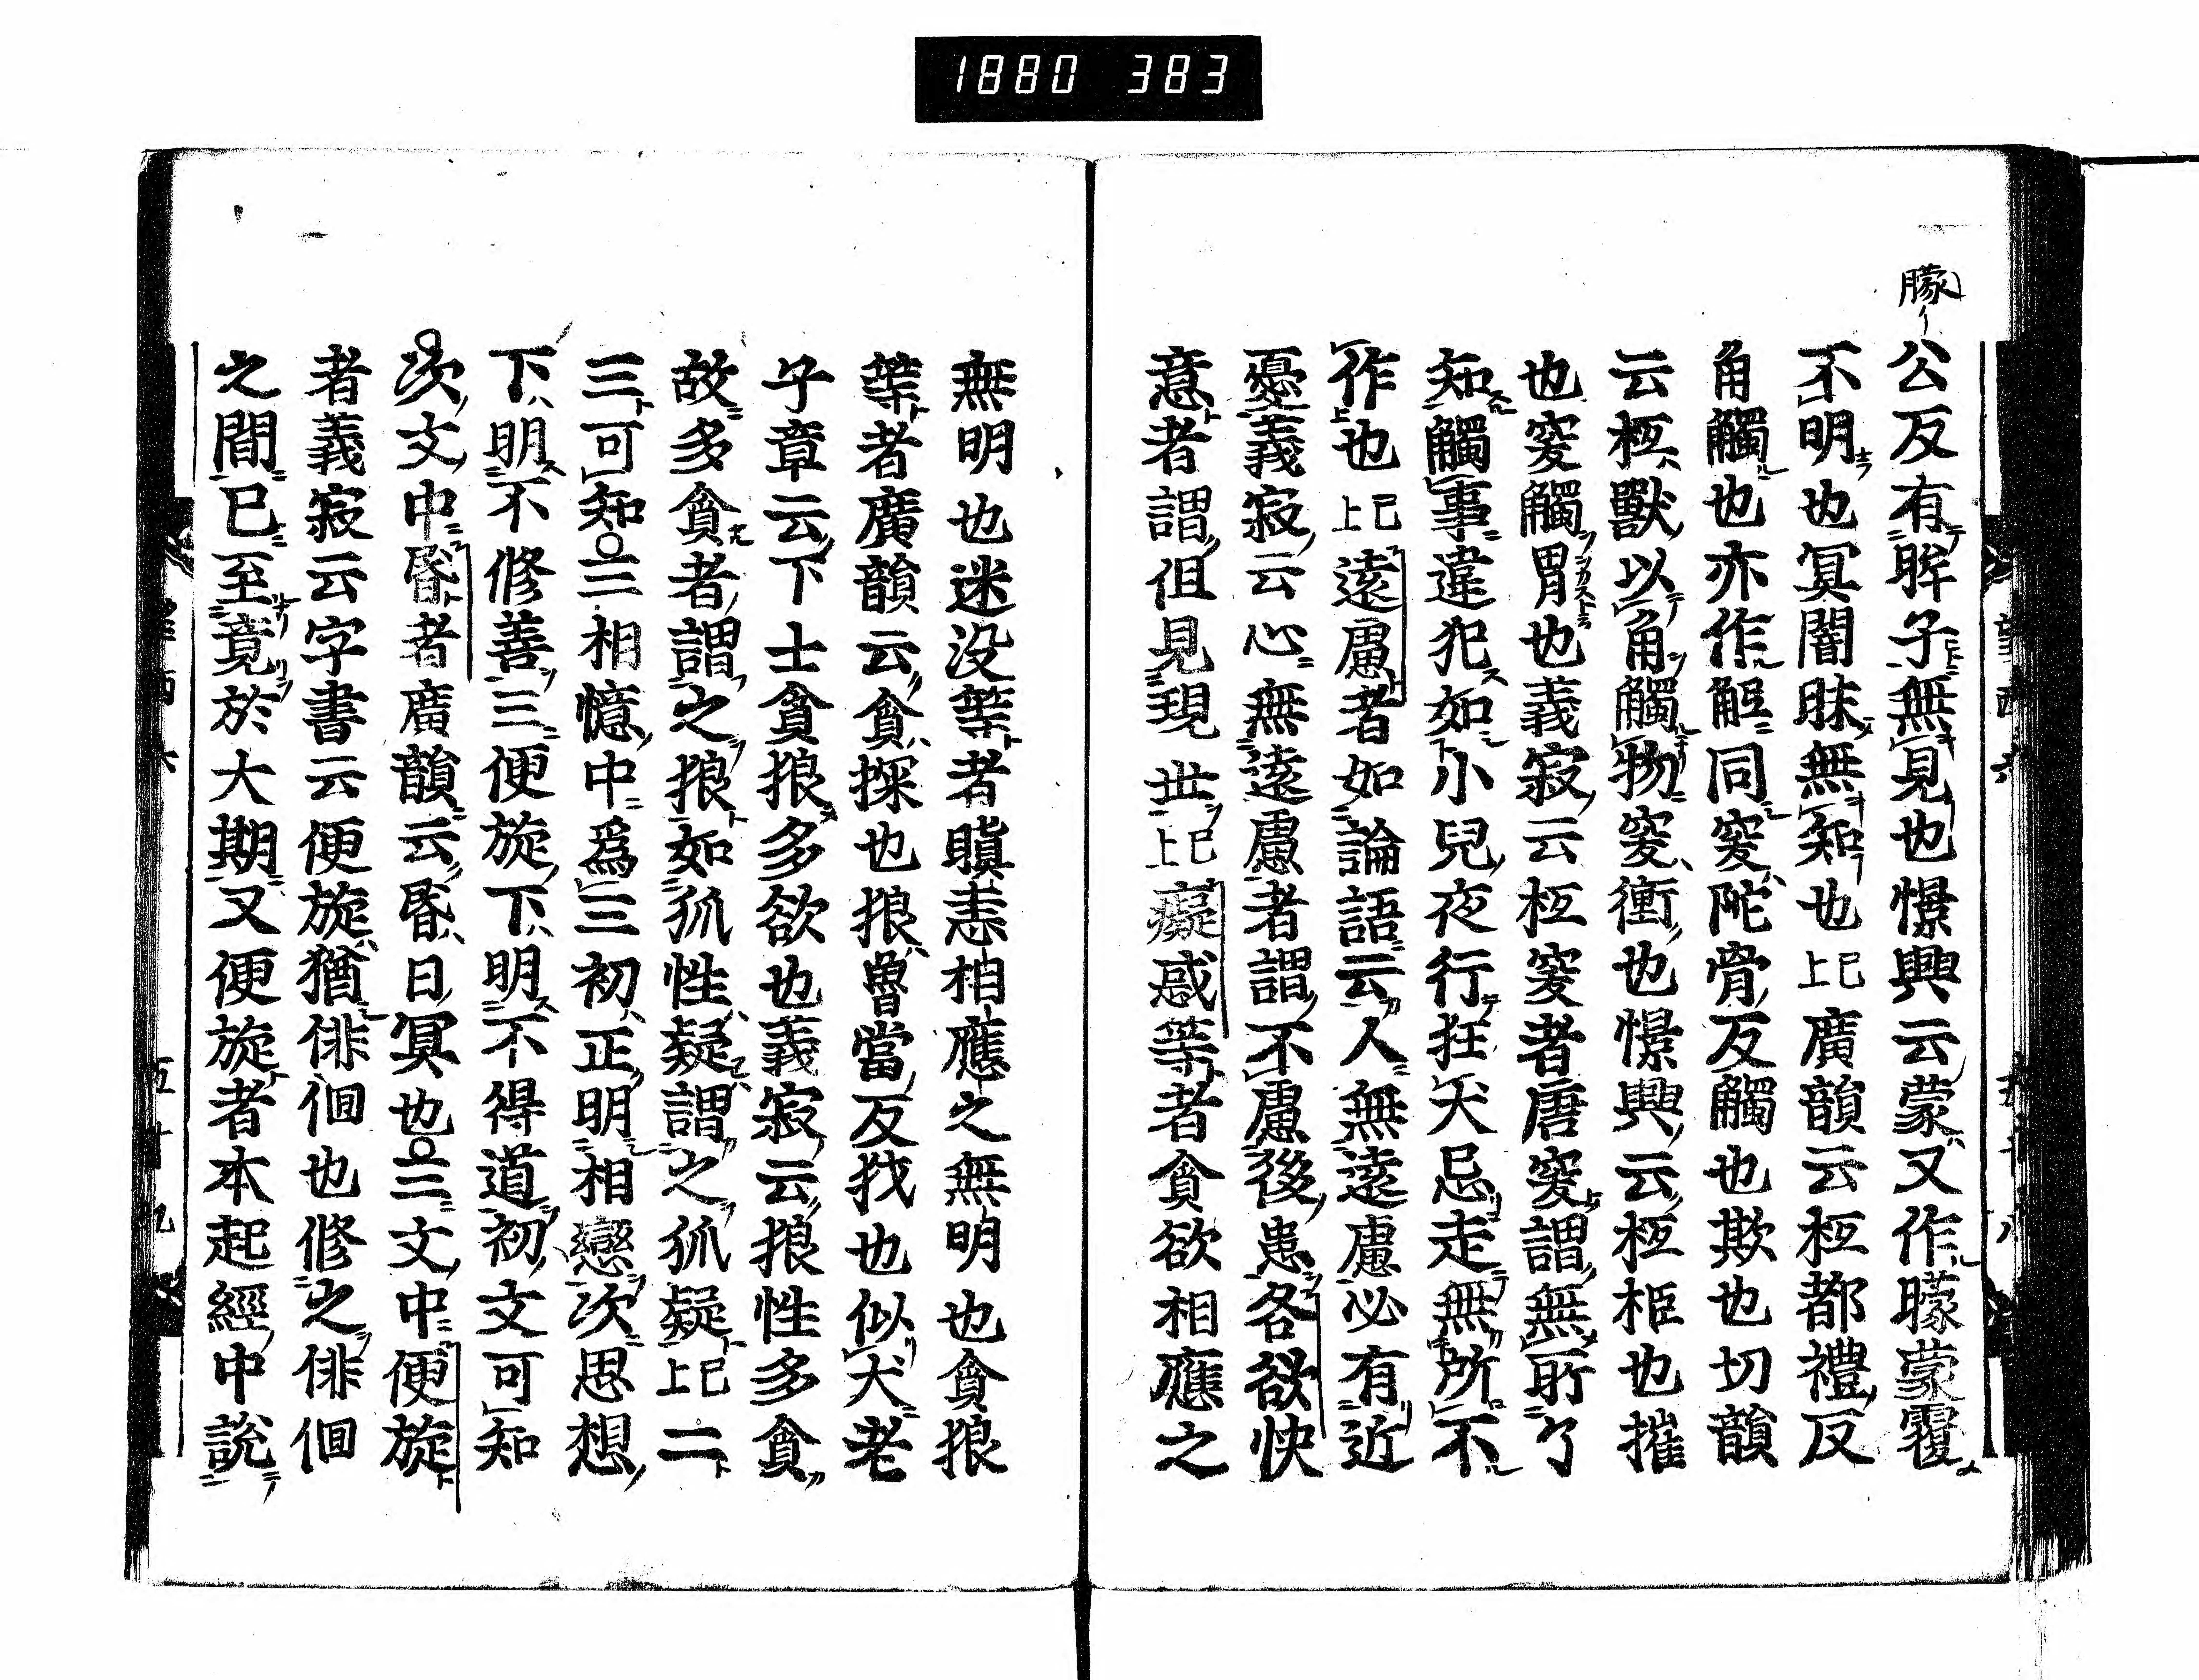 1880 383
矇
公反有眸子無見也憬興云蒙又作矇蒙覆
不明也冥闇昧無知也已上廣韻云抵都禮反
角觸也亦作觝同突陀骨反觸也欺也切韻
云抵獸以角觸物突衝也憬興云抵拒也摧
也突觸冐也義寂云抵突者唐突謂無所了
知觸事違犯如小兒夜行狂犬忌走無所不
作也已上遠慮者如論語云人無遠慮必有近
憂義寂云心無遠慮者謂不慮後患各欲快
意者謂但見現世已上癡惑等者貪欲相應之
無明也迷没等者瞋恚相應之無明也貪狼
等者廣韻云貪探也狼魯當反㹽也似犬老
子章云下士貪狼多欲也義寂云狼性多貪
故多貪者謂之狼如狐性疑謂之狐疑已上二
三可知○三相憶中爲三初正明相戀次思想
下明不修善三便旋下明不得道初文可知
次文中昬者廣韻云昬日冥也○三文中便旋
者義寂云字書云便旋猶俳佪也修之俳佪
之間已至竟於大期又便旋者本起經中説
五十九